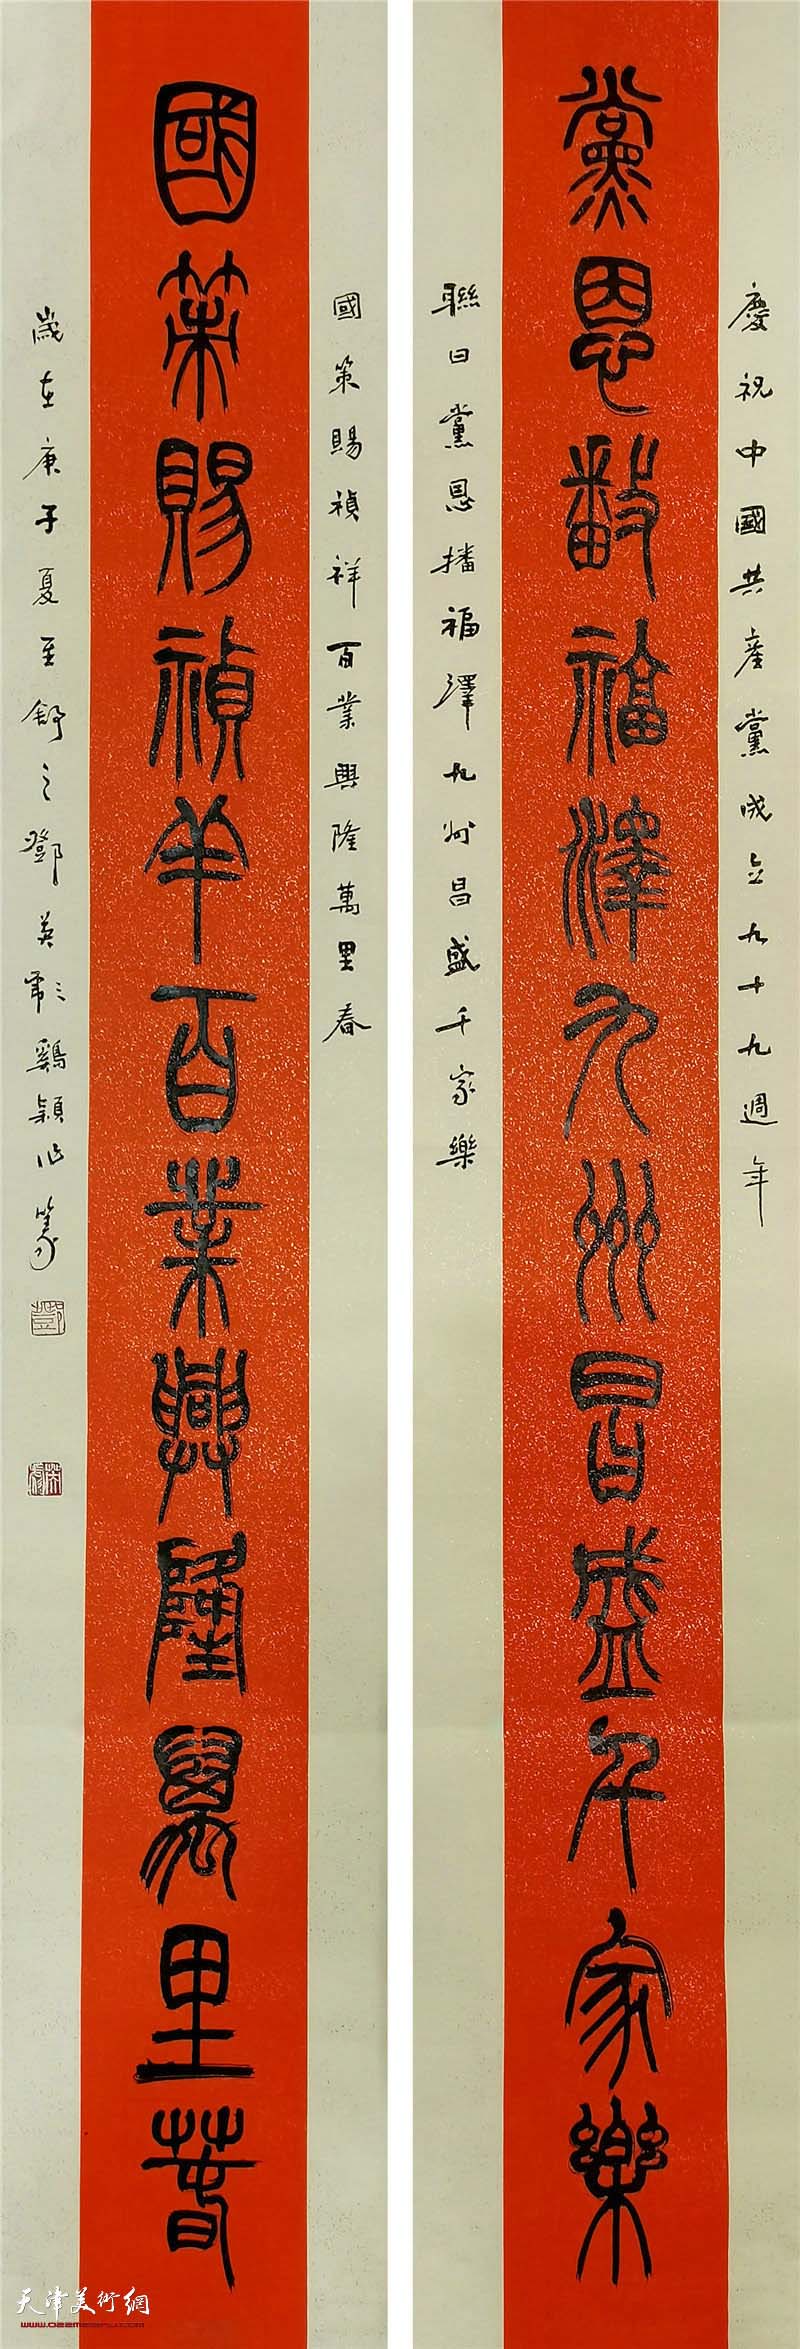 慶祝中國共產黨成立九十九週年
黨恩𢿥福澤九州昌盛千家樂
聯曰黨恩播福澤九州昌盛千家樂
國策賜禎祥百業興隆萬里春
國策賜禎羊百業興隆萬里春
歲在庚子夏至舒之鄧英鷄穎作篆
鄧
天津美術網